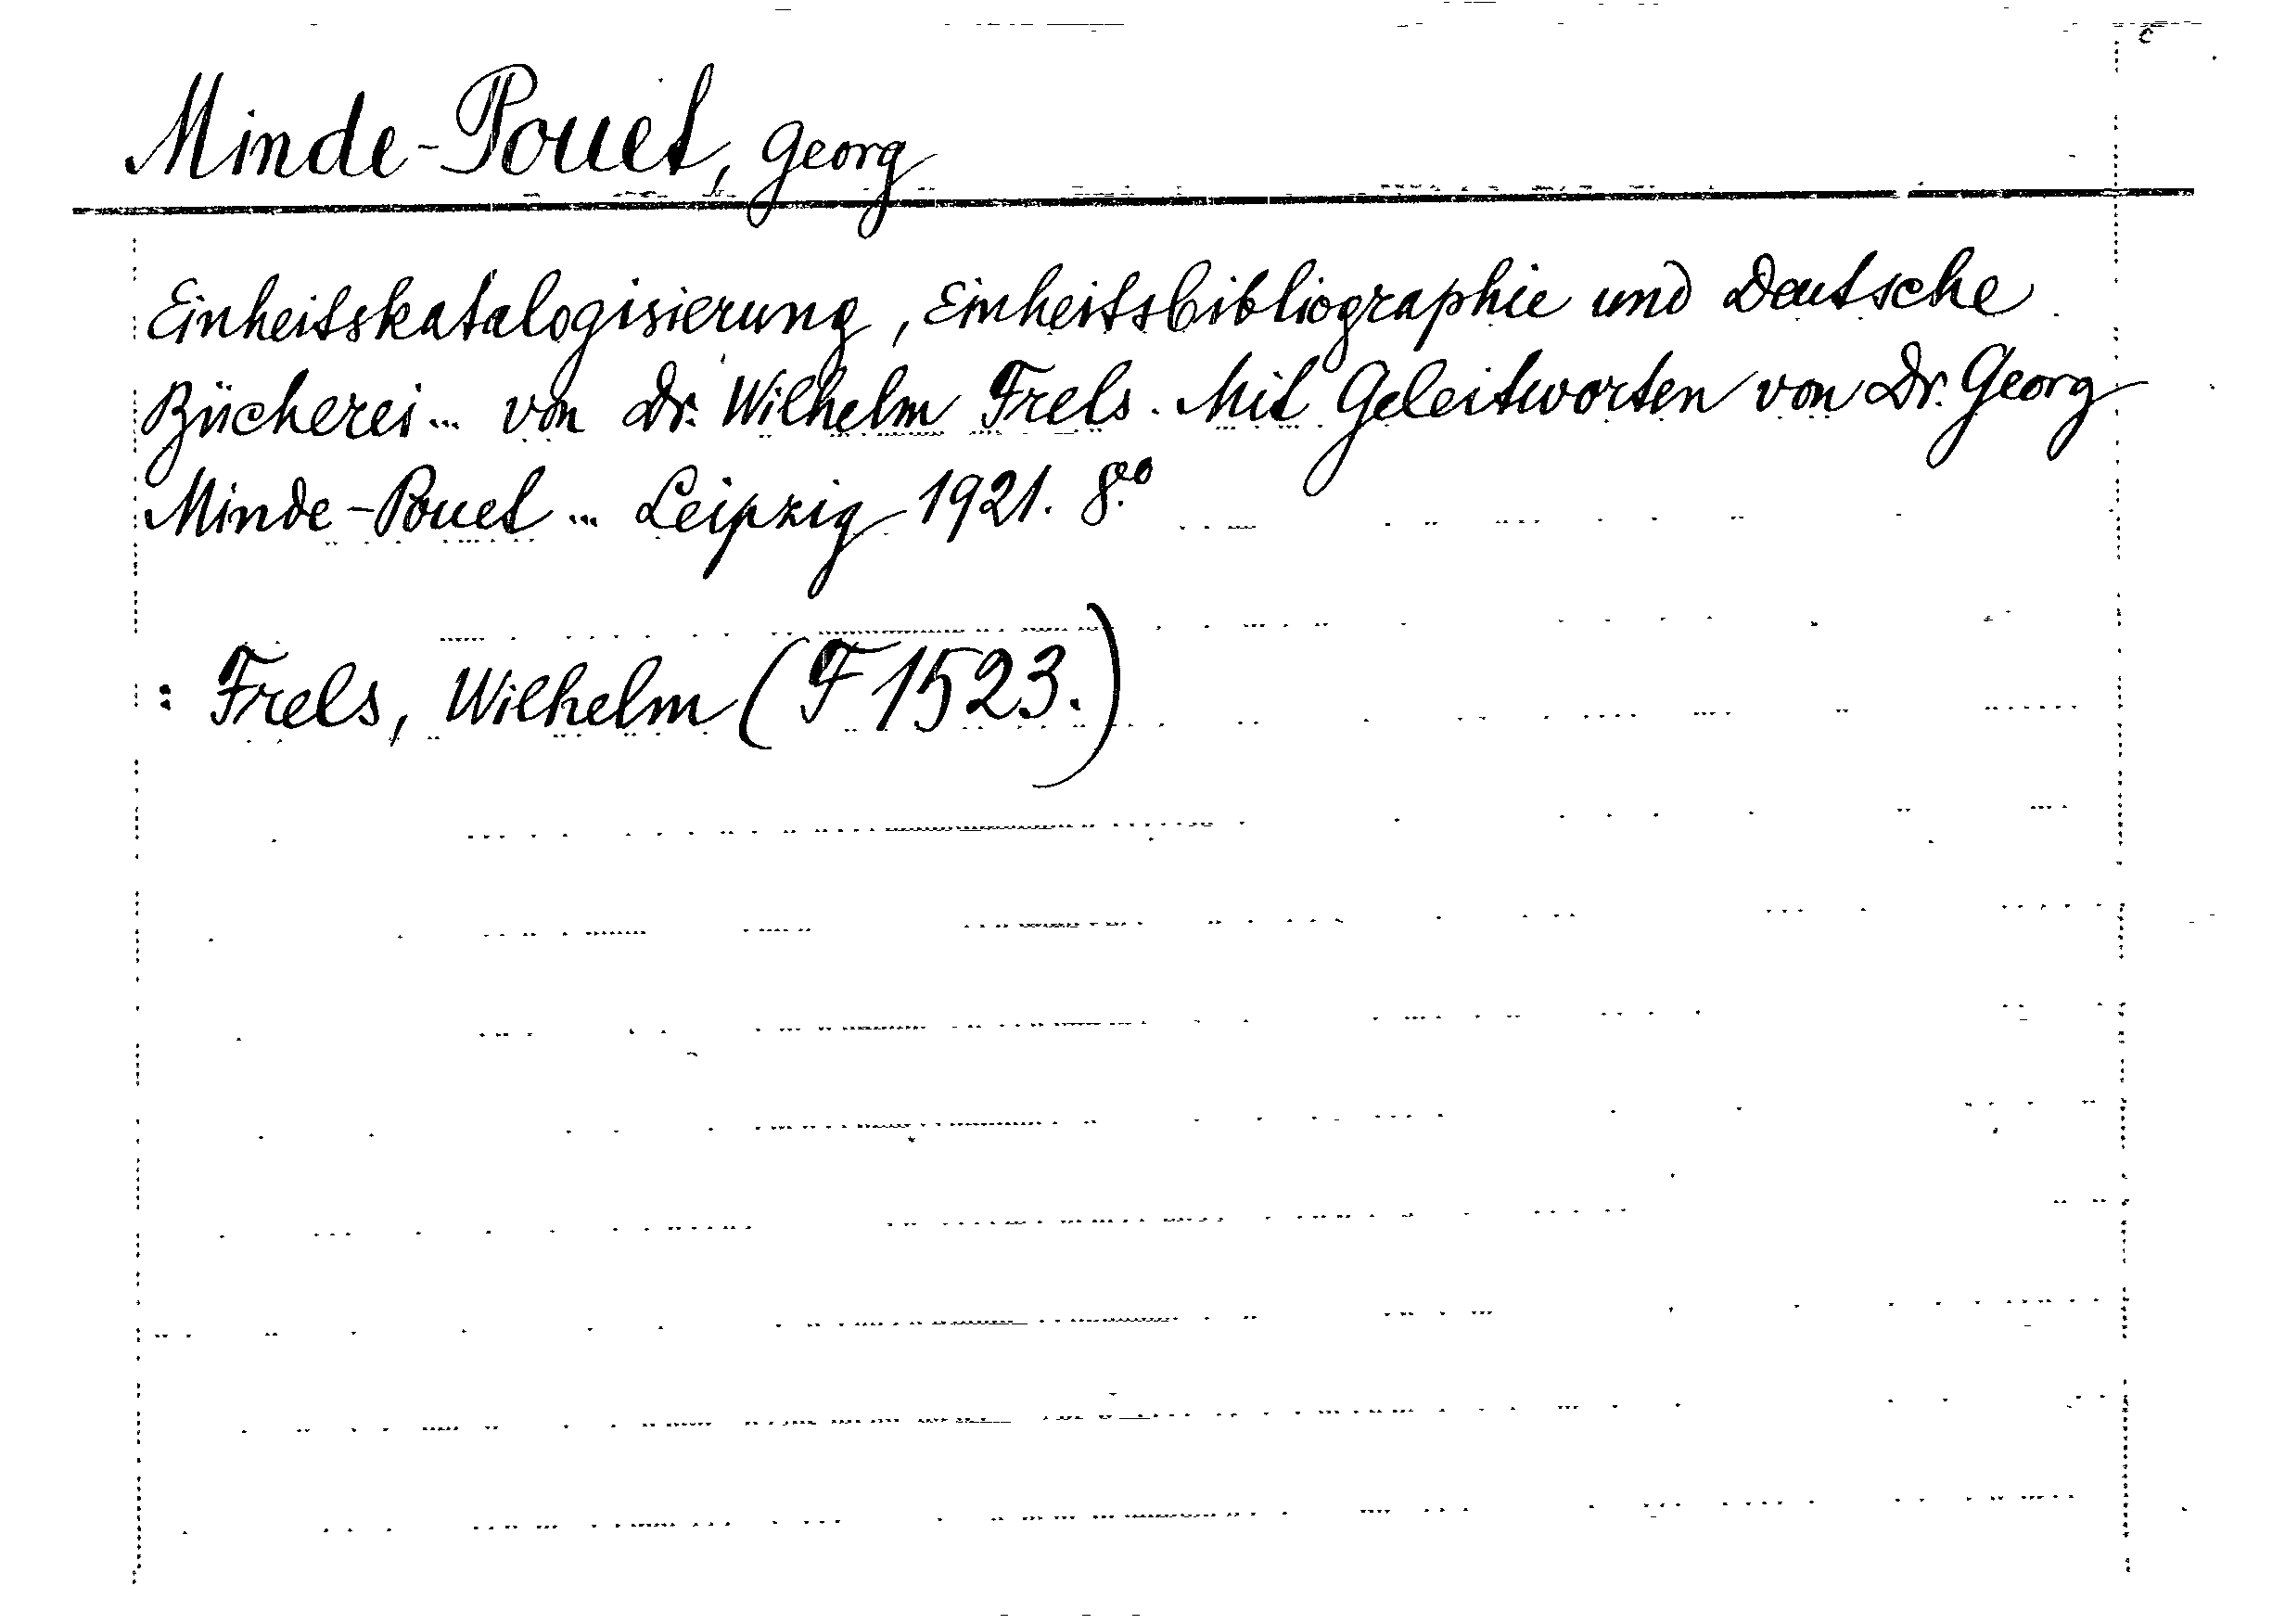 Minde-Pouet, Georg
Einheitskatalogisierung, Einheitsbibliographie und Deutsche
Bücherei... von Dr. Wilhelm Frels. Mit Geleitworten von Dr. Georg
Minde-Pouet... Leipzig 1921. 8.°
: Frels, Wilhelm (F 1523.)